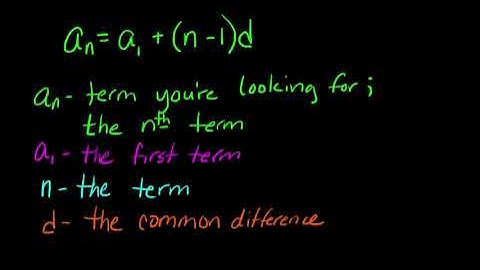 aₙ = a₁ + (n - 1)d
aₙ - term you're looking for;
the nth term
a₁ - the first term
n - the term
d - the common difference